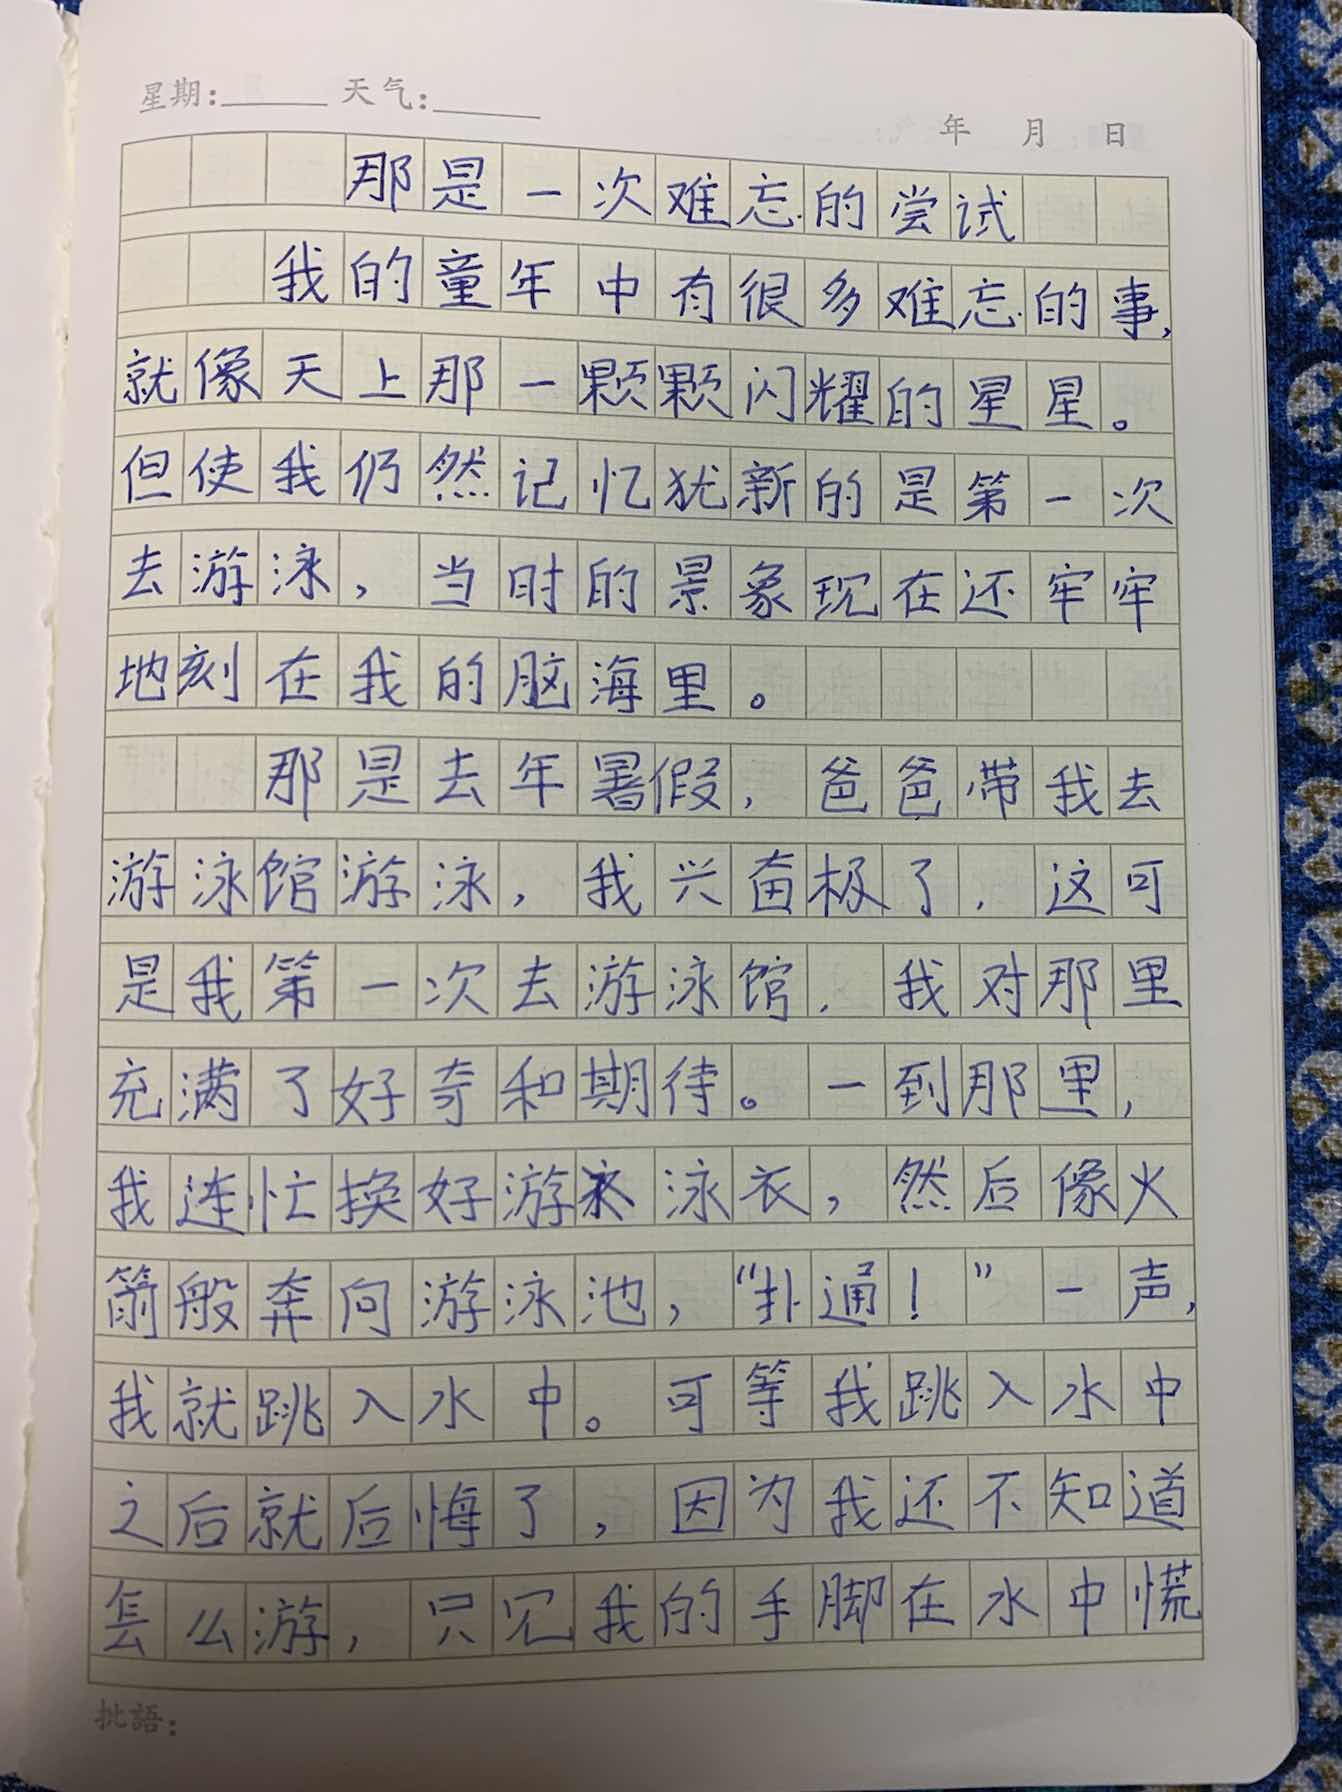 星期：　天气：
年　月　日
那是一次难忘的尝试
我的童年中有很多难忘的事，
就像天上那一颗颗闪耀的星星。
但使我仍然记忆犹新的是第一次
去游泳，当时的景象现在还牢牢
地刻在我的脑海里。
那是去年暑假，爸爸带我去
游泳馆游泳，我兴奋极了，这可
是我第一次去游泳馆，我对那里
充满了好奇和期待。一到那里，
我连忙换好游泳衣，然后像火
箭般奔向游泳池，“扑通！”一声，
我就跳入水中。可等我跳入水中
之后就后悔了，因为我还不知道
怎么游，只见我的手脚在水中慌
批語：